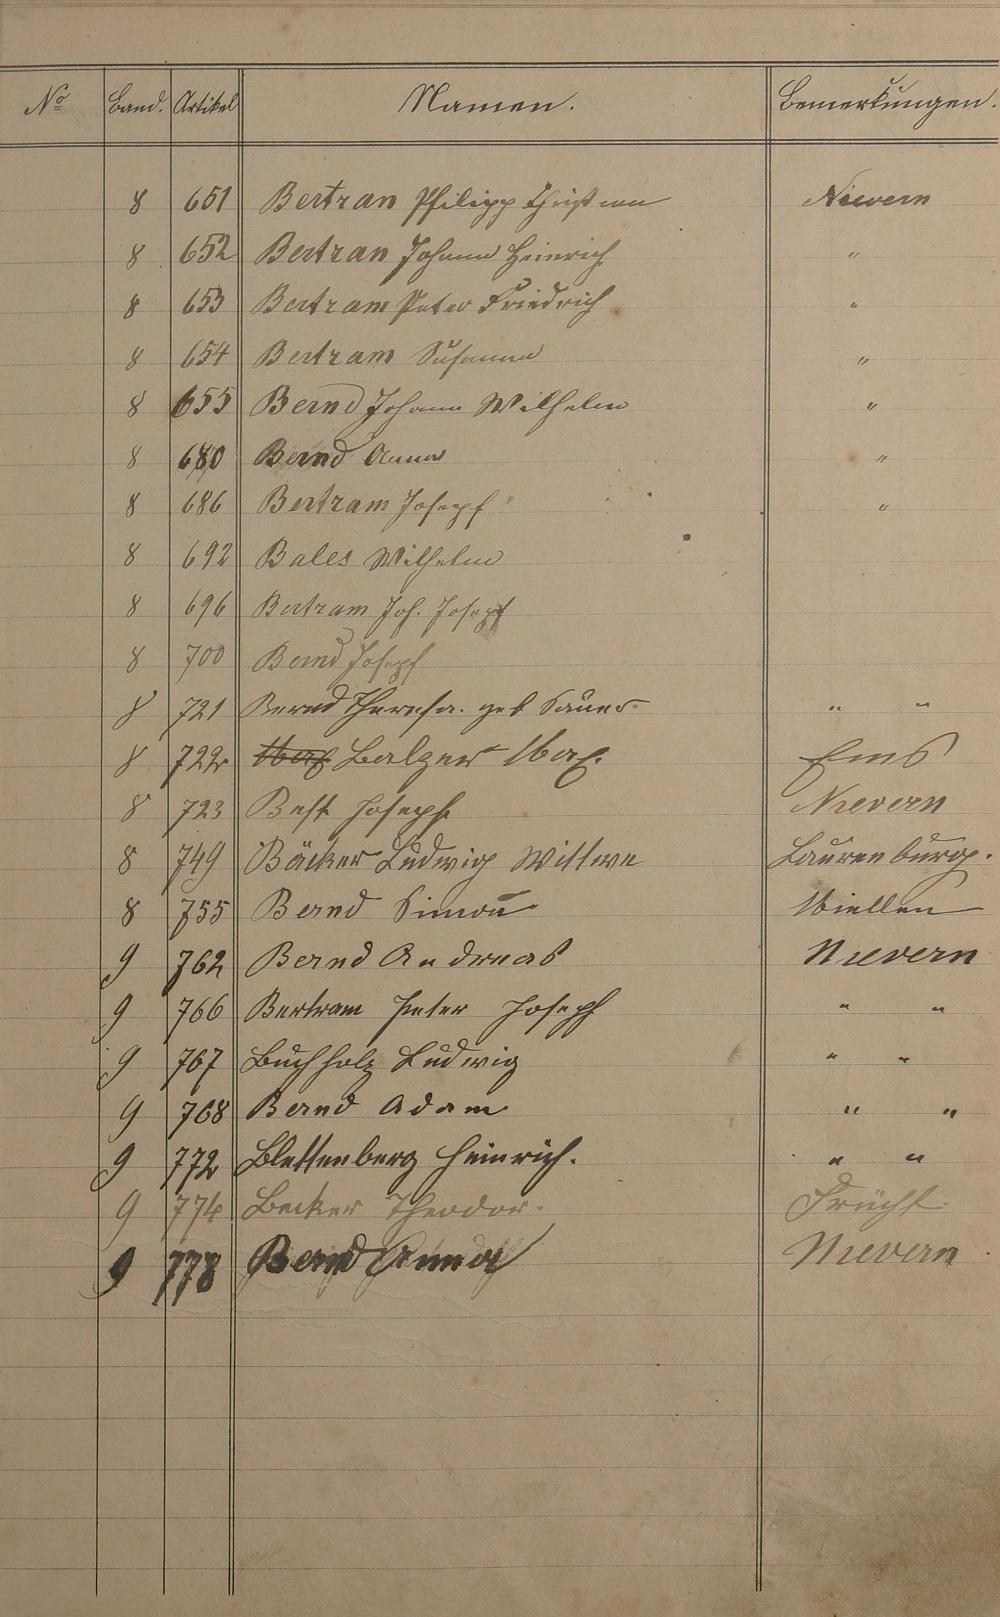 No Band. Artikel Namen. Bemerkungen.
8 651 Bertran Philipp Christian Nievern
8 652 Bertran Johann Heinrich "
8 653 Bertram Peter Friedrich "
8 654 Bertram Susanna "
8 655 Bernd Johann Wilhelm "
8 680 Bernd Anna "
8 686 Bertram Josepf "
8 692 Bales Wilhelm
8 696 Bertram Joh. Josepf
8 700 Bernd Josepf
8 721 Bernd Theresa. geb Sauer " "
8 722 Max Balzer Max. Ems
8 723 Best Joseph Nievern
8 749 Bäcker Ludwig Wittwe Laurenburg.
8 755 Bernd Simon Miellen
9 762 Bernd Andreas Nievern
9 766 Bertram Peter Joseph " "
9 767 Buchholz Ludwig " "
9 768 Bernd Adam " "
9 772 Blettenberg Heinrich. " "
9 774 Becker Theodor. Frücht
9 778 Bernd Anna Nievern